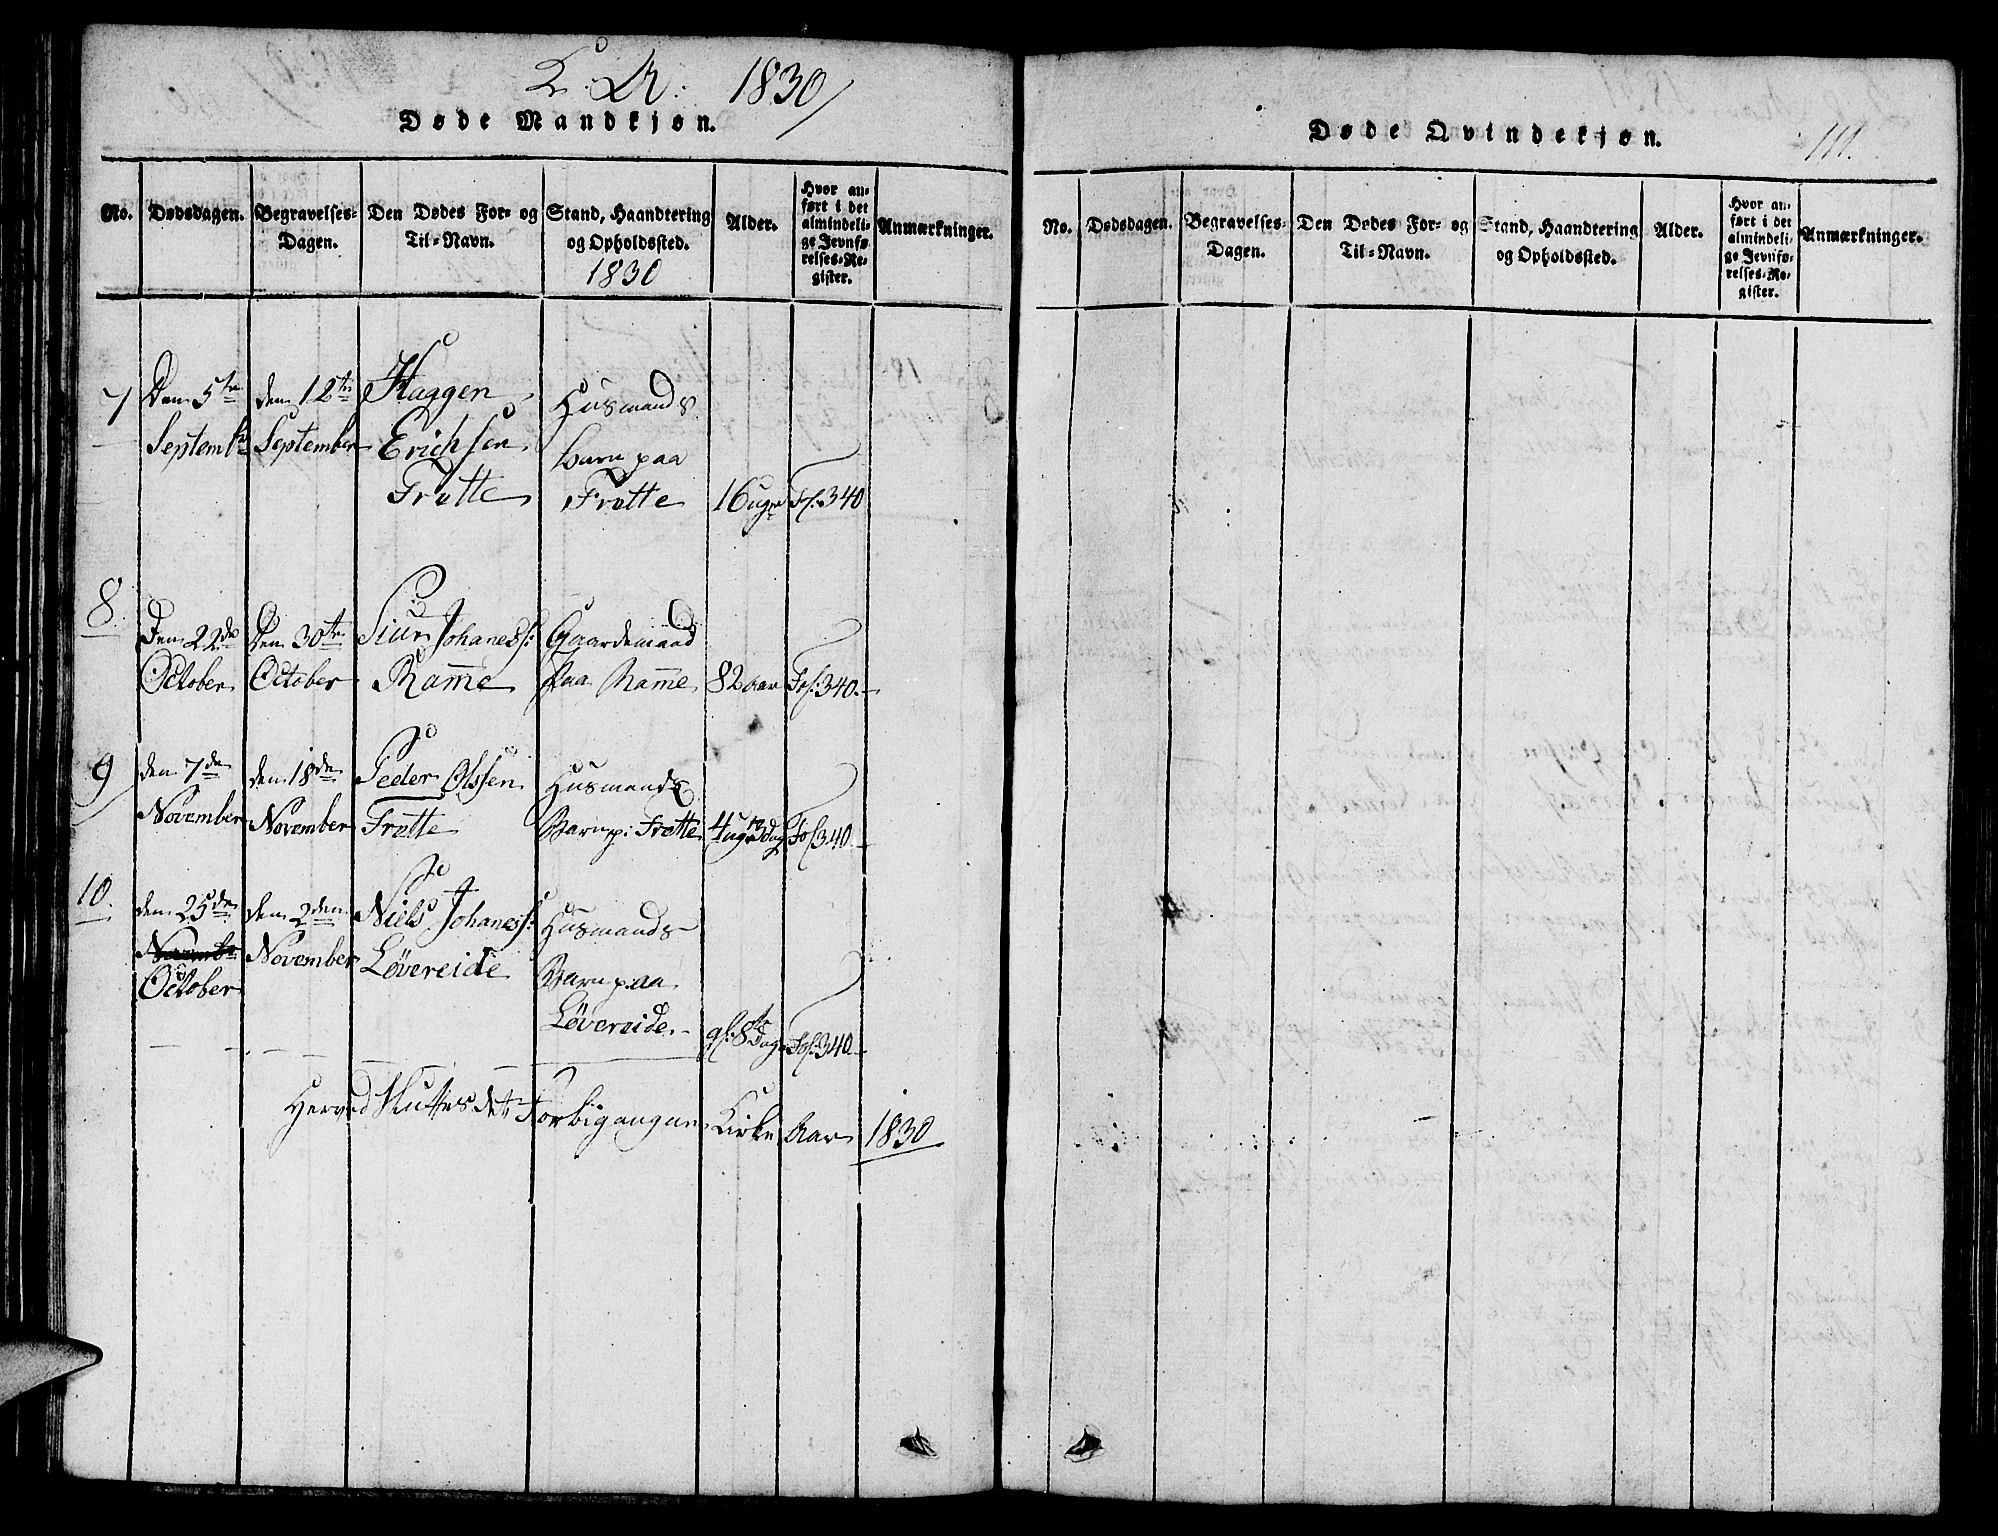 1830
Døde Mandkjøn.
No.
Dødsdagen.
Begravelses-
Dagen.
Den Dødes For- og
Til-Navn.
Stand, Haandtering
og Opholdssted.
1830
Alder.
Hvor an-
ført i det
almindeli-
ge Jevnfø-
relses-Re-
gister.
Anmærkninger.
7
Den 5te
Septembr
den 12te
September
Haggen
Erichsen
Frøtte
Husmands
barn paa
Frøtte
16 ugr
Fol. 340
8
Den 22de
October
Den 30te
October
Siur Johaness:
Ramme
Gaardemand
paa Ramme
82 aar
Fol: 340.
9
den 7de
November
den 18de
November
Peder Olssen
Frøtte
Husmands
Barn p: Frøtte
4 ugr
Fol 340.
10.
den 25de
Novembr
October
den 2den
November
Niels Johaness:
Løvereide
Husmands
Barn paa
Løvereide.
8te Dage
Fol: 340.
Herved Sluttes det Forbigangne Kirke Aar 1830
Døde Qvindekjøn.
111.
No.
Dødsdagen.
Begravelses-
Dagen.
Den Dødes For- og
Til-Navn.
Stand, Haandtering
og Opholdssted.
Alder.
Hvor an-
ført i det
almindeli-
ge Jevnfø-
relses-Re-
gister.
Anmærkninger.